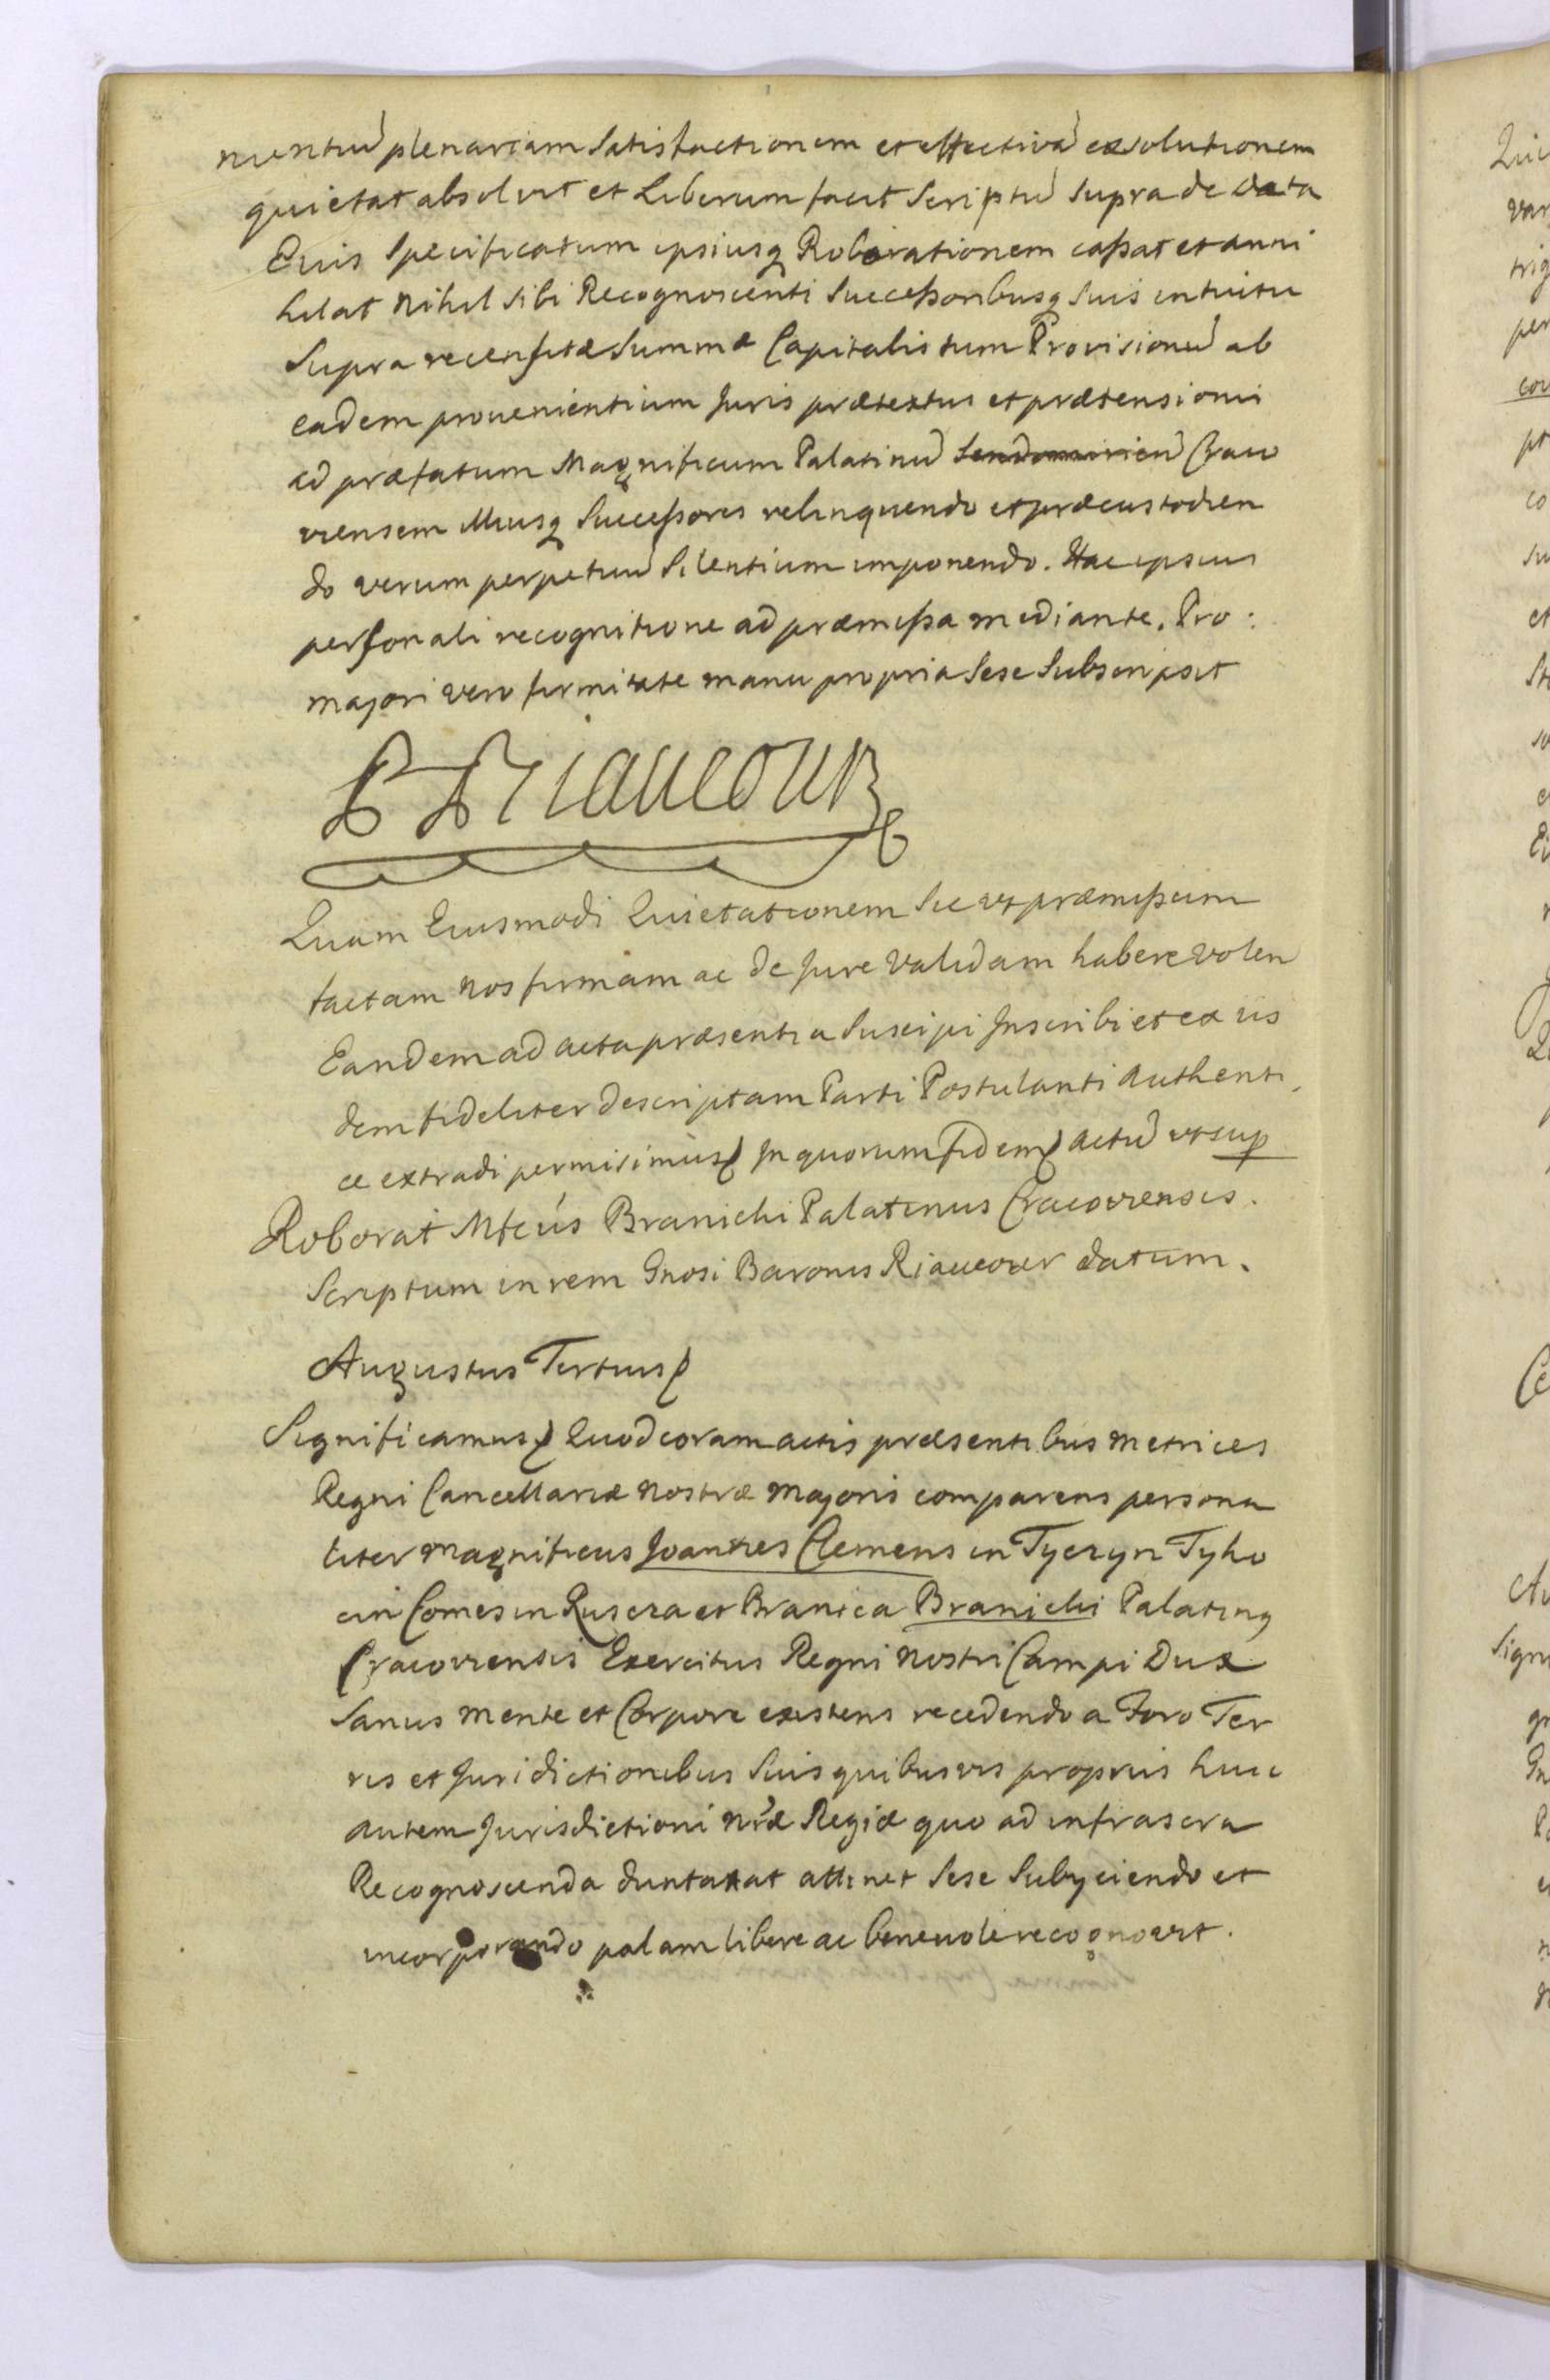 nientiū plenariam Satisfactionem et effectivā exsolutionem
quietat absolvit et Liberum facit Scriptū Supra de Data
Eius Specificatum ipsiusq Roborationem cassat et anni
hilat Nihil Sibi Recognoscenti Successoribusq Suis intuitu
Supra recensitæ Summæ Capitalis tum Provisionū ab
eadem provenientium Juris prætextus et prætensioni
ad præfatum Magnificum Palatinū Sendomirien Craco
viensem illiusq Successores relinquendo et præcustodien
do verum perpetuū Silentium imponendo. Hac ipsius
personali recognitione ad præmissa mediante. Pro:
majori vero firmitate manu propria Sese Subscripsit
Riaucour
Quam Eiusmodi Quietationem Sic ut præmissum
factam Nos firmam ac de Jure Validam habere volen
Eandem ad acta præsentia Suscipi Inscribi et ex iis
dem fideliter descriptam Parti Postulanti Authenti
ce extradi permisimus In quorum fidem Actū ut sup
Roborat Mfcus Branicki Palatinus Cracoviensis.
Scriptum in rem Gnosi Baronis Riaucour datum.
Augustus Tertius
Significamus Quod coram actis præsentibus Metrices
Regni Cancellariæ Nostræ Majoris comparens persona
liter Magnificus Joannes Clemens in Tyczyn Tyko
cin Comes in Ruscza et Branica Branicki Palating
Cracoviensis Exercitus Regni Nostri Campi Dux
Sanus Mente et Corpore existens recedendo a Foro Ter
ris et Juridictionibus Suis quibusvis propriis huic
Autem Jurisdictioni Nræ Regiæ quo ad infrascra
Recognoscenda duntaxat attinet Sese Subyciendo et
incorporando palam libere ac benevole recognovit.